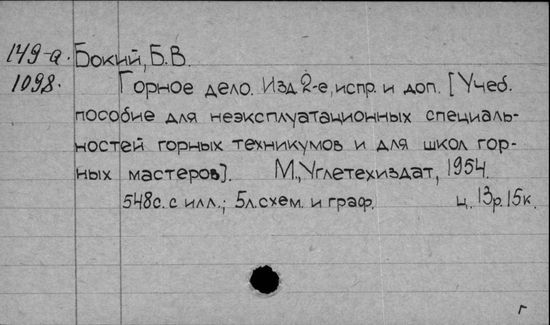 149-а. Бокий, Б.В.
1098. Горное дело. Изд. 2-е, испр. и доп. [Учеб.
пособие для неэксплуатационных специаль-
ностей горных техникумов и для школ гор-
ных мастеров]. М., Углетехиздат, 1954.
548с. с илл.; 5л.схем. и граф. ц. 13р. 15к.
г